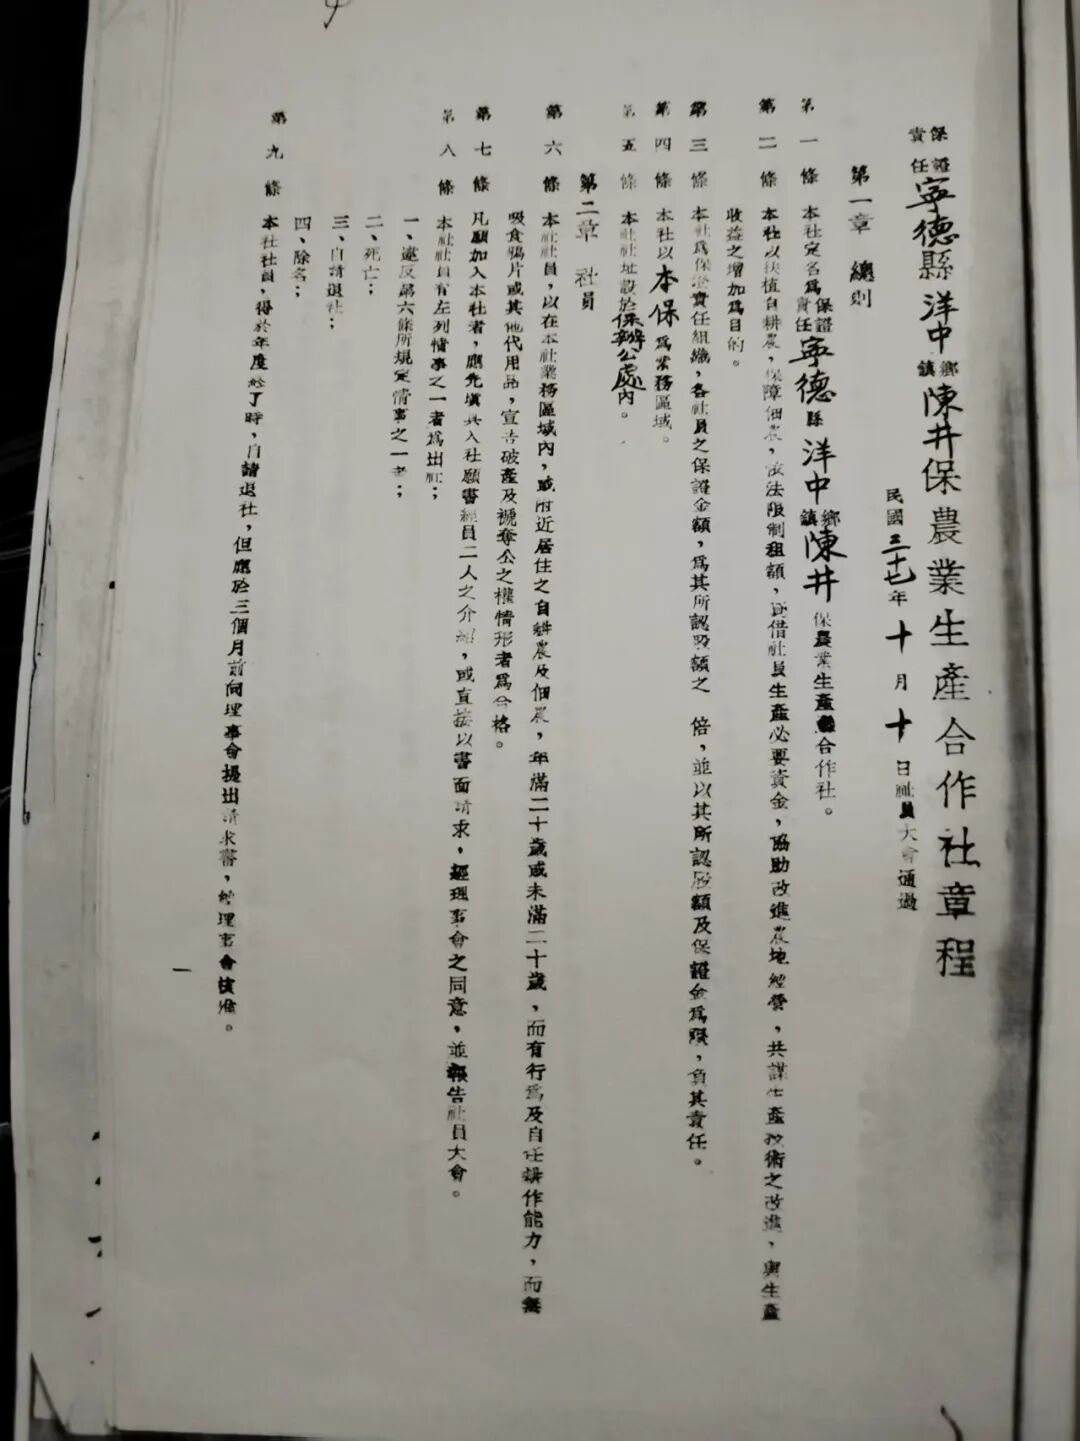 保證責任寧德縣洋中鄉鎮陳井保農業生產合作社章程
民國三十七年十月十日社員大會通過
第一章 總則
第一條 本社定名為保證責任寧德縣洋中鄉鎮陳井保農業生產合作社。
第二條 本社以扶植自耕農，保障佃農，依法限制租額，貸借社員生產必要資金，協助改進農地經營，共謀生產技術之改進，與生產
收益之增加為目的。
第三條 本社為保證責任組織，各社員之保證金額，為其所認股額之 倍，並以其所認股額及保證金為限，負其責任。
第四條 本社以本保為業務區域。
第五條 本社社址設於保辦公處內。
第二章 社員
第六條 本社社員，以在本社業務區域內，或附近居住之自耕農及佃農，年滿二十歲或未滿二十歲，而有行為及自任耕作能力，而無
吸食鴉片或其他代用品，宣告破產及褫奪公之權情形者為合格。
第七條 凡願加入本社者，應先填具入社願書經員二人之介紹，或直接以書面請求，經理事會之同意，並報告社員大會。
第八條 本社社員有左列情事之一者為出社；
一、違反第六條所規定情事之一者；
二、死亡；
三、自請退社；
四、除名；
第九條 本社社員，得於年度終了時，自請退社，但應於三個月前向理事會提出請求書，經理事會核准。
一